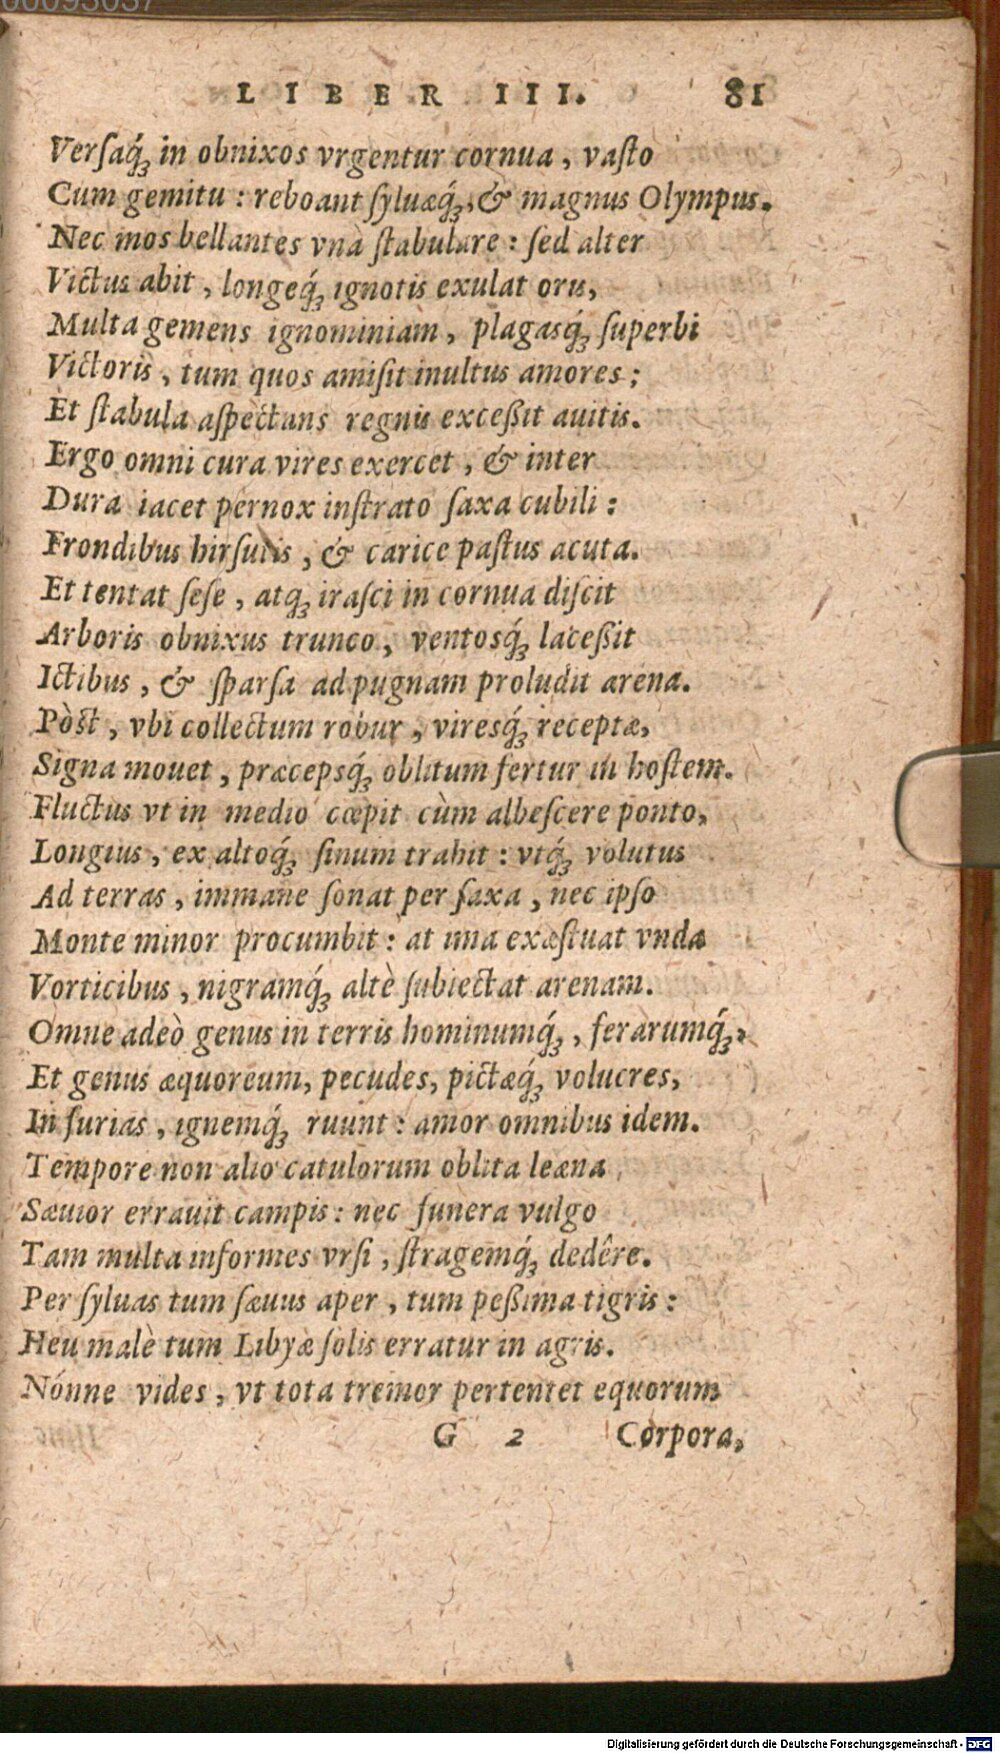 00093037
LIBER III. 81
Verſaq́; in obnixos vrgentur cornua, vaſto
Cum gemitu: reboant ſyluæq́;, & magnus Olympus.
Nec mos bellantes vnà ſtabulare: ſed alter
Victus abit, longeq́; ignotis exulat oris,
Multa gemens ignominiam, plagasq́; ſuperbi
Victoris, tum quos amiſit inultus amores;
Et ſtabula aſpectans regnis exceßit auitis.
Ergo omni cura vires exercet, & inter
Dura iacet pernox inſtrato ſaxa cubili:
Frondibus hirſutis, & carice paſtus acuta.
Et tentat ſeſe, atq; iraſci in cornua diſcit
Arboris obnixus trunco, ventosq́; laceßit
Ictibus, & ſparſa ad pugnam proludit arena.
Pòſt, vbi collectum robur, viresq́; receptæ,
Signa mouet, præcepsq́; oblitum fertur in hoſtem.
Fluctus vt in medio cœpit cùm albeſcere ponto,
Longius, ex altoq́; ſinum trahit: vtq́; volutus
Ad terras, immane ſonat per ſaxa, nec ipſo
Monte minor procumbit: at ima exæſtuat vnda
Vorticibus, nigramq́; altè ſubiectat arenam.
Omne adeò genus in terris hominumq́;, ferarumq́;,
Et genus æquoreum, pecudes, pictæq́; volucres,
In furias, ignemq́; ruunt: amor omnibus idem.
Tempore non alio catulorum oblita leæna
Sæuior errauit campis: nec funera vulgo
Tam multa informes vrſi, ſtragemq́; dedêre.
Per ſyluas tum ſæuus aper, tum peßima tigris:
Heu malè tum Libyæ ſolis erratur in agris.
Nónne vides, vt tota tremor pertentet equorum
G 2 Corpora,
Digitalisierung gefördert durch die Deutsche Forschungsgemeinschaft - DFG